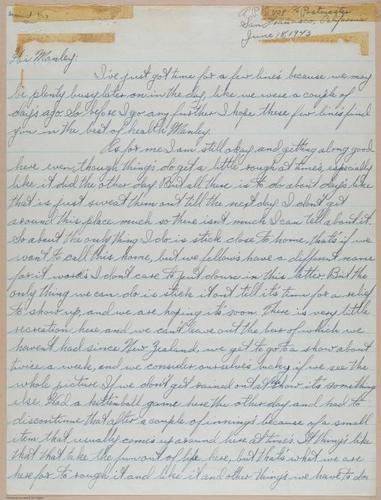 A.P.O. 708 % Postmaster
San Francisco, California
June 18, 1943
Hi Manley:
I've just got time for a few lines because we may
be plenty busy later on in the day, like we were a couple of
days ago. So before I go any further I hope these few lines find
you in the best of health Manley.
As for me I am still okay and getting along good
here even though things do get a little rough at times, especially
like it did the other day. But all there is to do about days like
that is just sweat them out till the next day. I don't get
around this place much so there isn't much I can tell about it.
So about the only thing I do is stick close to home, that's if we
want to call this home, but we fellows have a different name
for it which I don't care to put down in this letter. But the
only thing we can do is stick it out till it's time for a relief
to show up, and we are hoping it's soon. There is very little
recreation here and we can't leave out the beer of which we
haven't had since New Zealand, we get to go to a show about
twice a week, and we consider ourselves lucky if we see the
whole picture. If we don't get rained out at show it's something
else. Had a kittenball game here the other day and had to
discontinue that after a couple of innings because of a small
item that usually comes up around here at times. It things like
that that take the fun out of life here, but that's what we are
here for to rough it and like it and other things we have to do